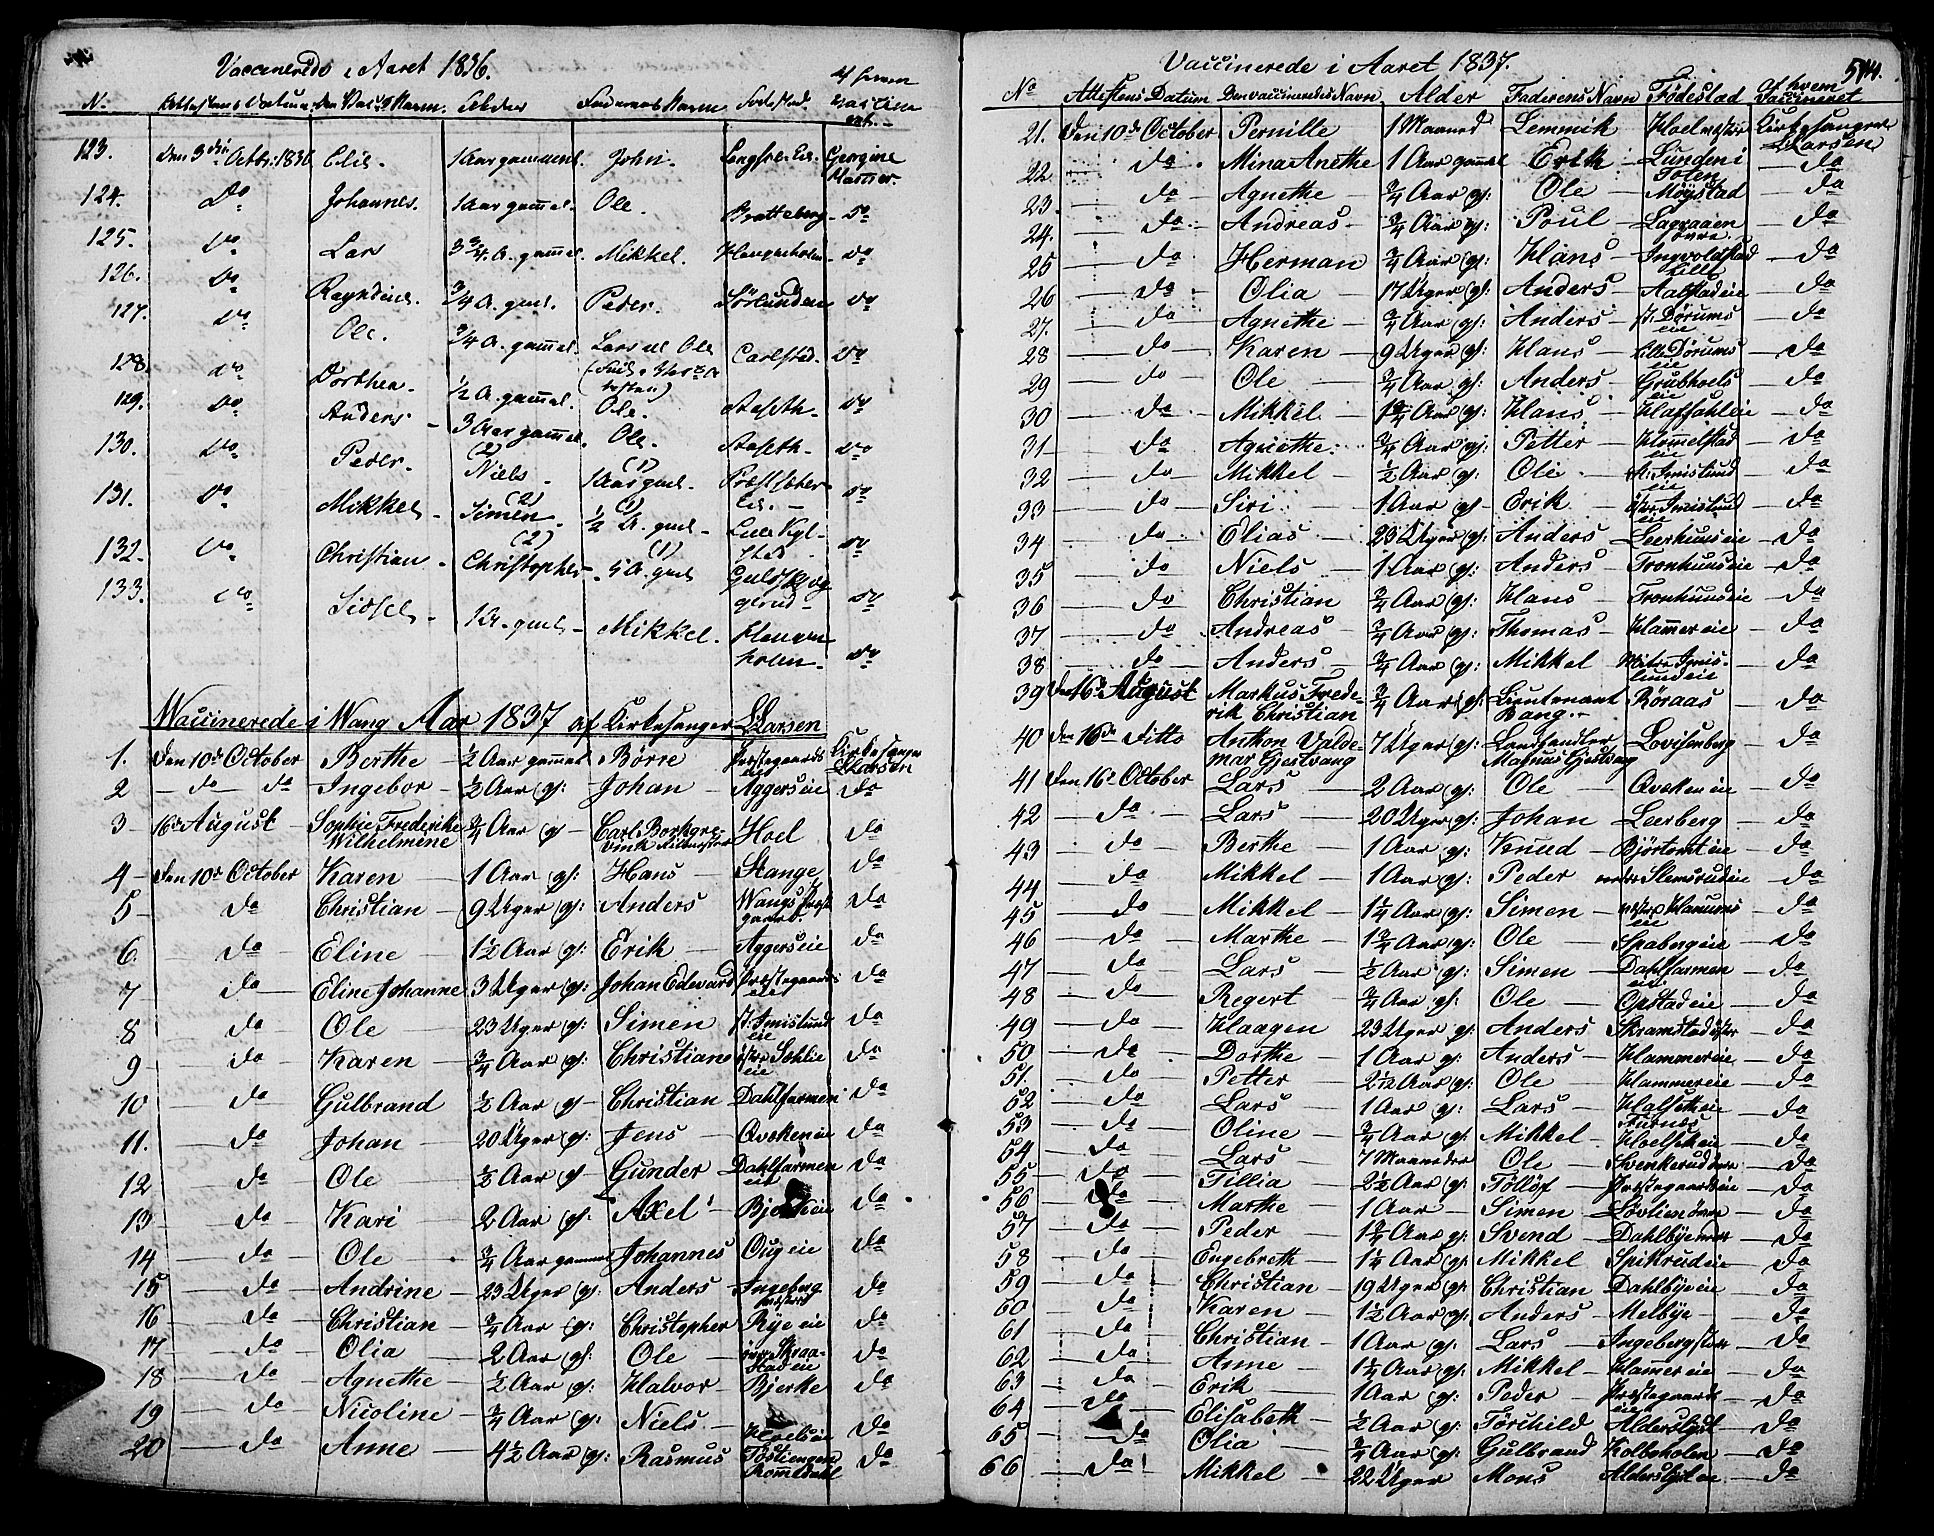 Vaccinerede i Aaret 1836.
No Attestens Datum den Vac: Navn. Faderens Navn. Fødested. af hvem vaccineret.
123. Den 3die Octbr. 1836 Elie. 1 Aar gammel. John. Georgine
124. Do Johannes. 1 Aar gammel. Ole. Bratteberg Do
125. Do Lars 3 3/4 A. gammel. Mikkel. Do
126. Do 3/4 A. gml. Peder. Sørlunden Do
127. Do Ole. 3/4 A. gammel. Lars Ole Carlstad. Do
128. Do Dorthea 1/2 A. gammel. Ole. Do
129. Do Anders 3 Aar gammel. Ole. Do
130. Do Peder. (2) Niels (1) 1 Aar gml. Do
131. Do Mikkel (2) Simen (1) 1/2 A. gml. Do
132. Do Christian (2) Christopher (1) 5 A. gml Do
133. Do 1 A. gml Mikkel. Do
Waccinerede i Wang Aar 1837 af Kirkesanger L Larsen
1. Den 10de October Berthe 1/2 Aar gammel Børre Præstegaards Kirkesanger L Larsen
2 do do Ingebor 1/2 Aar gl: Johan Aggerseie Do
3 16de August Sophie Frederike Wilhelmene 3/4 Aar gl Carl Borkgrevink Hoel do
4 Den 10de October Karen 1 Aar gl: Hans Stange do
5 do Christian 9 Uger gl: Anders Wangs Præstgaard do
6 do Eline 1 1/2 Aar gl: Erik Aggerseie do
7 do Eline Johanne 3 Uger gl: Johan Edevard Præstegaards eie do
8 do Ole 23 Uger gl: Simen Imislund eie do
9 do Karen 3/4 Aar gl: Christian Sælie eie do
10 do Gulbrand 1/2 Aar gl Christian Dahlfarmen do
11. do Johan 20 Uger gl: Jens Qvekeneie do
12 do Ole 1/2 Aar gl Gunder Dahlfarmen eie do
13 do Kari 2 Aar gl: Axel do
14 do Ole 3/4 Aar gammel Johannes Oug eie do
15 do Andrine 23 Uger gl: Anders Ingeberg do
16 do Christian 3/4 Aar gl: Christopher Rye eie do
17 do Olia 2 Aar gl: Ole Skraastadeie do
18 do Agnethe 1/2 Aar gl: Halvor Bjerke do
19 do Nicoline 3/4 Aar gl: Niels Hoelseie do
20 do Anne 4 1/2 Aar gl: Rasmus Romedahl do
Vaccinerede i Aaret 1837. 514.
No Attestens Datum Den vaccineredes Navn Alder Faderens Navn Fødestad af hvem Vaccineret
21. Den 10de October Pernille 1 Maaned Lemmik Hoel Kirkesanger L Larsen
22 do Mina Anethe 1 Aar gammel Erik Lunden i Toten do
23. do Agnethe 3/4 Aar gl: Ole Møystad do
24. do Andreas 3/4 Aar gl: Poul do
25 do Herman 3/4 Aar gl: Hans Ingvoldstad do
26 do Olia 17 Uger gl: Anders Aalstadeie do
27. do Agnethe 3/4 Aar gl: Anders Dørums eie do
28 do Karen 9 Uger gl: Hans Lille Dørums eie do
29 do Ole 3/4 Aar gl: Anders Grubhoels eie do
30 do Mikkel 1 3/4 Aar gl: Hans do
31 do Agnethe 3/4 Aar gl: Petter Hommelstad eie do
32 do Mikkel 1/2 Aar gl: Ole Imislund eie do
33 do Siri 1 Aar gl Erik Imislund eie do
34 do Elias 23 Uger gl: Anders do
35 do Niels 1 Aar gl: Anders Tronhuuseie do
36 do Christian 3/4 Aar gl: Hans Tronhuuseie do
37 do Andreas 3/4 Aar gl: Thomas Hammer eie do
38 do Anders 3/4 Aar gl: Mikkel Imislundeie do
39 Den 16de August Markus Frederik Christian 3/4 Aar gl: Lieutenant Bang Røraas do
40 Den 16de ditto Anthon Valdemar Gjestvang 7 Uger gl: Landhandler Mathias Gjestvang Lovisenberg do
41 Den 16de October Lars 2 Aar gl: Ole Qvekeneie do
42 do Lars 20 Uger gl: Johan Leerberg do
43 do Berthe 1 Aar gl: Knud Bjørtomteie do
44 do Mikkel 1 Aar gl: Peder Slemsrudeie do
45 do Mikkel 1 1/4 Aar gl: Simen Hanums eie do
46 do Marthe 1 3/4 Aar gl: Ole Spabergeie do
47 do Lars 1/2 Aar gl: Simen Dahlfarmen eie do
48 do Regert 3/4 Aar gl: Ole Opstadeie do
49 do Haagen 23 Uger gl: Anders Skramstad do
50 do Dorthe 1 Aar gl: Anders Hammereie do
51. do Petter 2 1/2 Aar gl: Ole Hammereie do
52 do Lars 1 Aar gl: Lars Halsetheie do
53 do Oline 3/4 Aar gl: Mikkel Furnes do
54 do Lars 7 Maaneder Ole Svenkerud do
55 do Tillia 2 1/2 Aar gl: Tollof Præstegaardseie do
56 do Marthe 1 Aar Simen Løvlien do
57 do Peder 1 3/4 Aar gl: Svend Dahlbye do
58 do Engebreth 1 1/4 Aar gl: Mikkel Spikrudeie do
59 do Christian 19 Uger gl: Christian Dahlbyeeie do
60 do Karen 1 1/2 Aar gl: Anders Melbye do
61 do Christian 1 Aar gl: Lars Ingeberg do
62 do Anne 1 1/4 Aar gl: Mikkel Hammer eie do
63 do Erik 1 Aar gl: Peder Præstegaards eie do
64 do Elisabeth 1/2 Aar gl: Torkild Alderslyst do
65 do Olia 3/4 Aar gl: Gulbrand Kolbeholen do
66 do Mikkel 22 Uger Mons Alderslysteie do